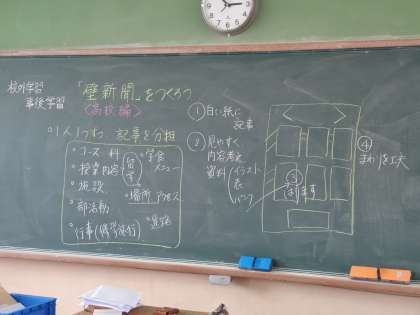 校外学習
事後学習
「壁新聞」をつくろう
〈高校編〉
○1人1つずつ 記事を分担
・コース・科
・授業内容
・施設
・部活動
・行事(修学旅行)
・学食
メニュー
・場所 アクセス
・進路
①白い紙に
記事
②見やすく
内容考え
資料(イラスト
表
③
はります
④
まわりを工夫